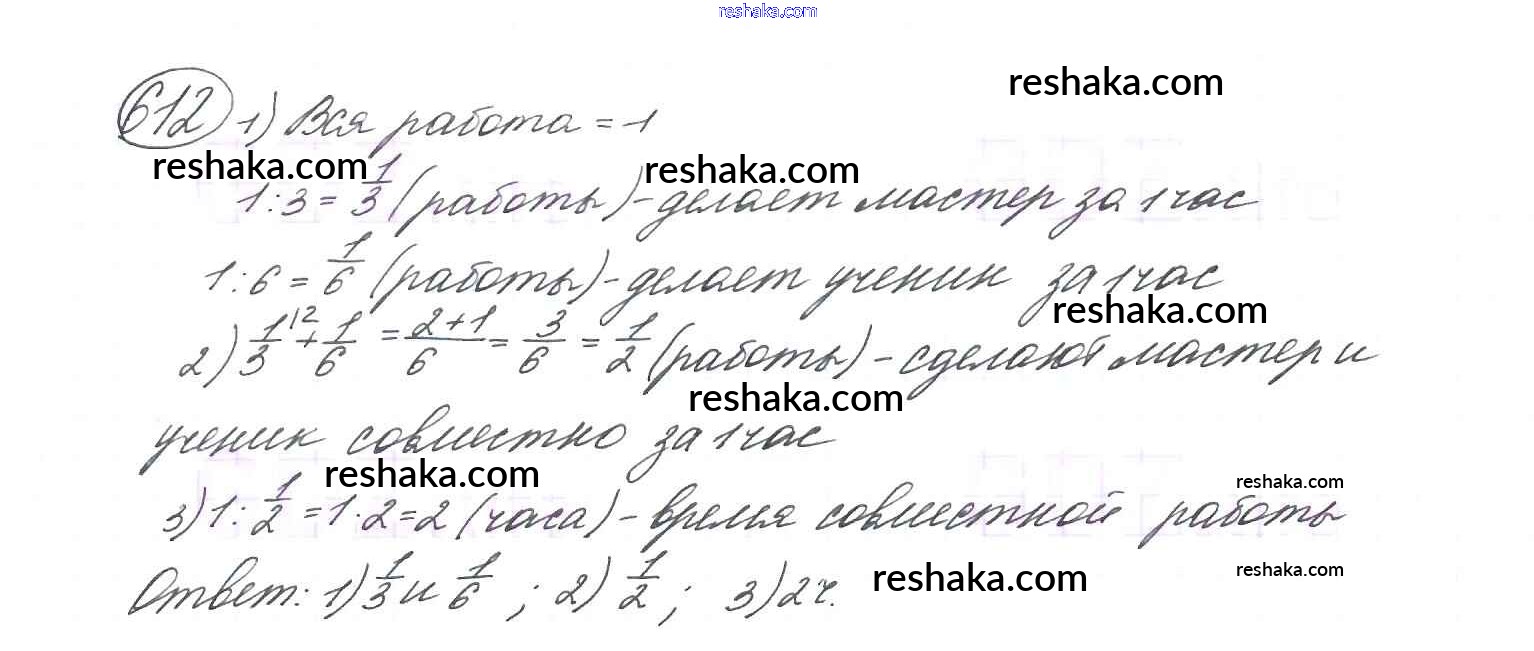 reshaka.com
reshaka.com
612 1) Вся работа = 1
reshaka.com reshaka.com
1:3 = 1/3 (работы) - делает мастер за 1 час
1:6 = 1/6 (работы) - делает ученик за 1 час
reshaka.com
2) 1/3 |2 + 1/6 = 2+1/6 = 3/6 = 1/2 (работы) - сделают мастер и
reshaka.com
ученик совместно за 1 час
reshaka.com
reshaka.com
3) 1: 1/2 = 1·2 = 2 (часа) - время совместной работы
reshaka.com reshaka.com
Ответ: 1) 1/3 и 1/6 ; 2) 1/2 ; 3) 2 ч.